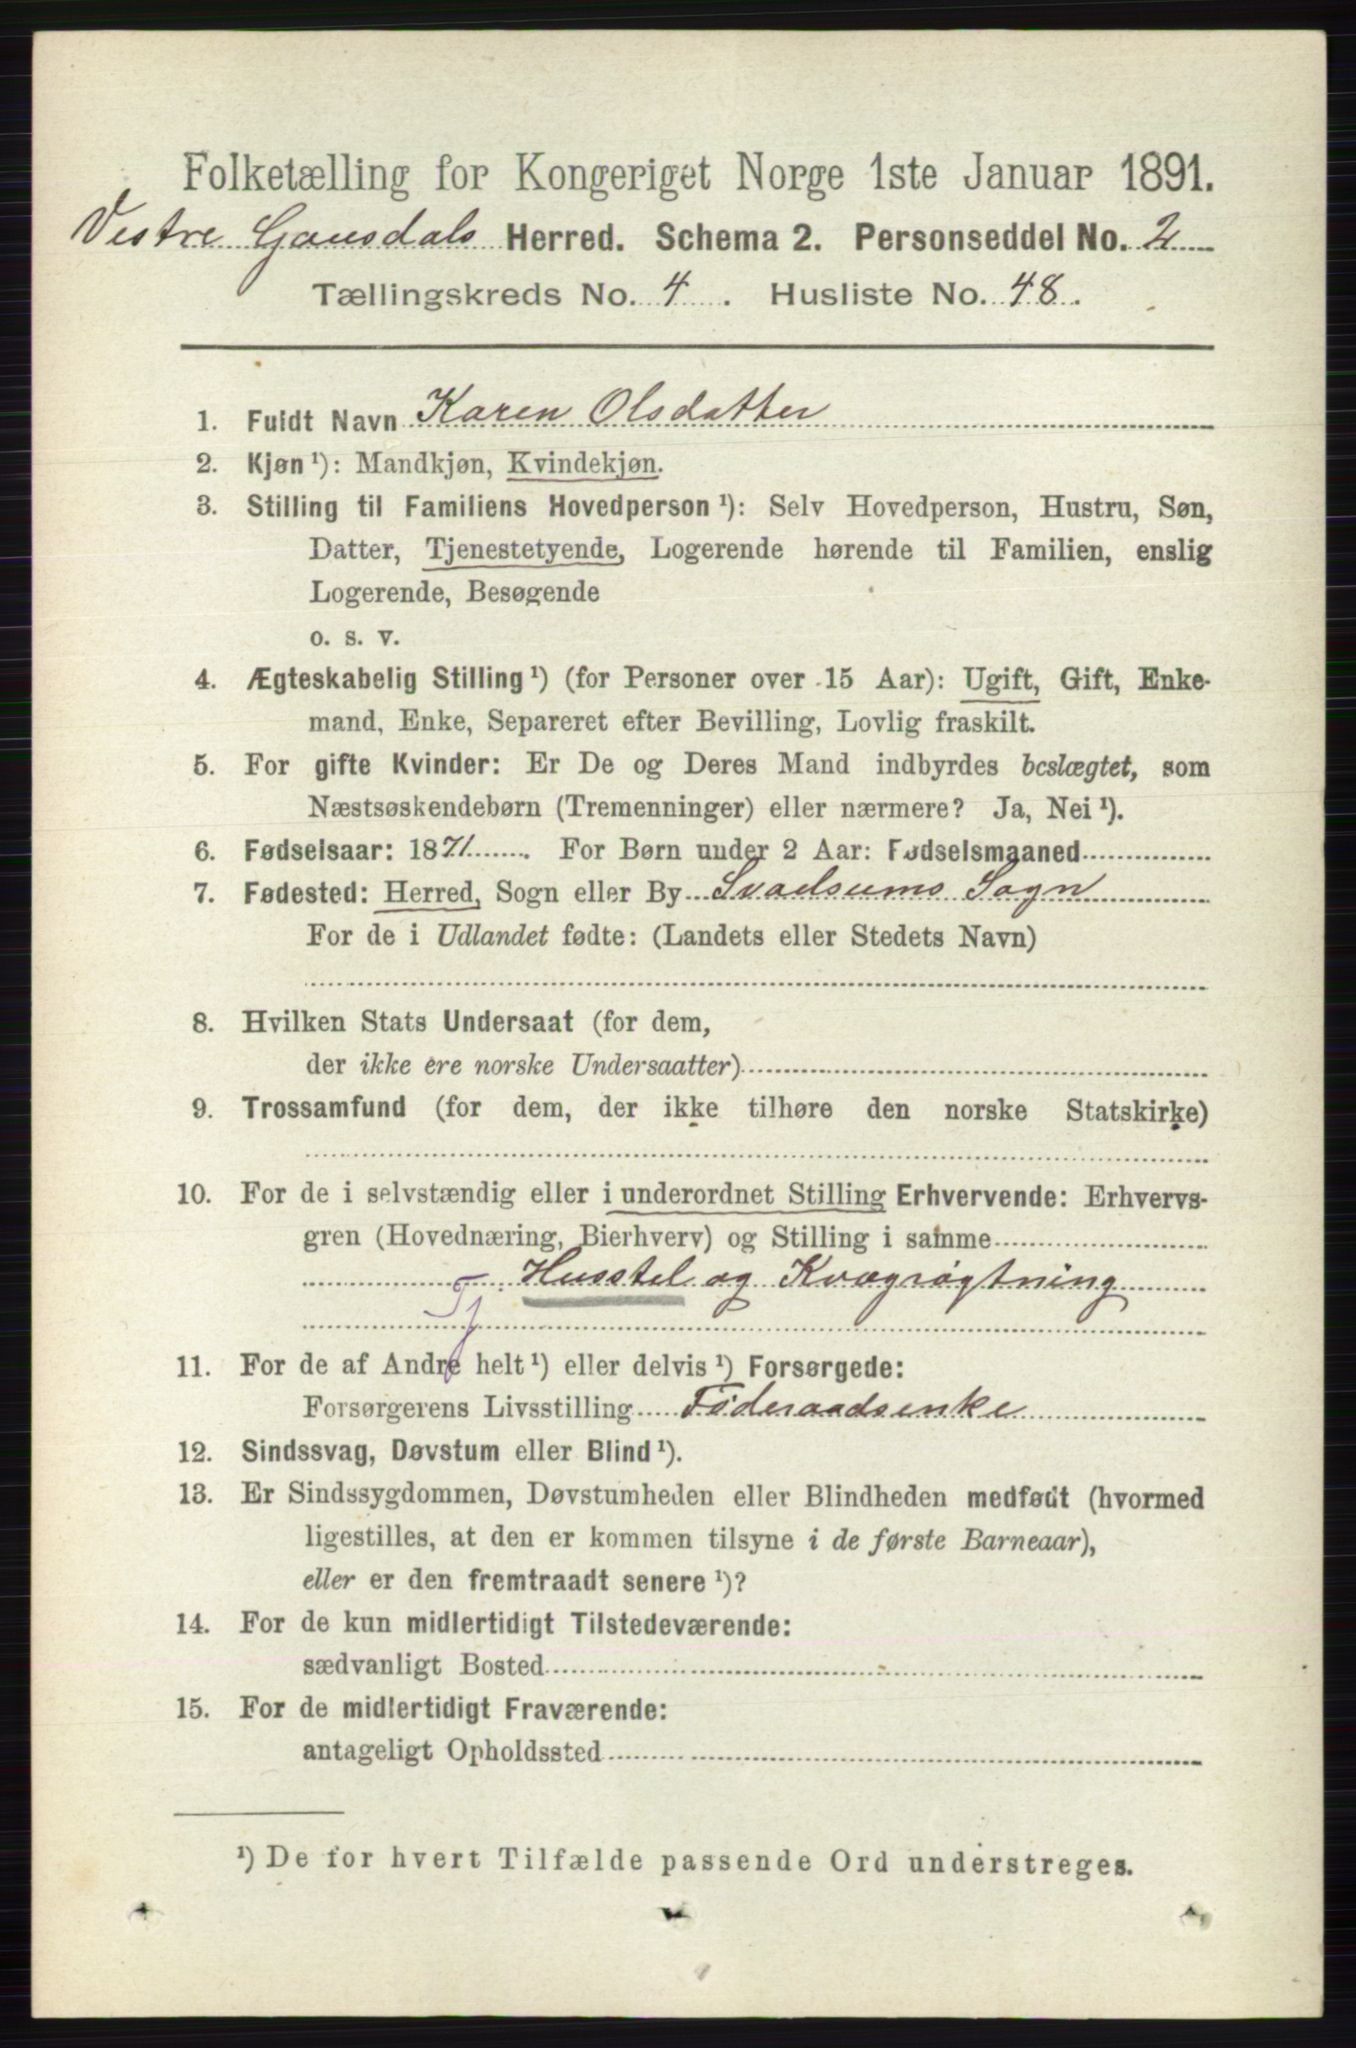 Folketælling for Kongeriget Norge 1ste Januar 1891.
Vestre Gausdals Herred. Schema 2. Personseddel No. 2
Tællingskreds No. 4. Husliste No. 48.
1. Fuldt Navn Karen Olsdatter
2. Kjøn¹): Mandkjøn, Kvindekjøn.
3. Stilling til Familiens Hovedperson¹): Selv Hovedperson, Hustru, Søn,
Datter, Tjenestetyende, Logerende hørende til Familien, enslig
Logerende, Besøgende
o. s. v.
4. Ægteskabelig Stilling¹) (for Personer over 15 Aar): Ugift, Gift, Enke-
mand, Enke, Separeret efter Bevilling, Lovlig fraskilt.
5. For gifte Kvinder: Er De og Deres Mand indbyrdes beslægtet, som
Næstsøskendebørn (Tremenninger) eller nærmere? Ja, Nei¹).
6. Fødselsaar: 1871. For Børn under 2 Aar: Fødselsmaaned
7. Fødested: Herred, Sogn eller By Svadsums Sogn
For de i Udlandet fødte: (Landets eller Stedets Navn)
8. Hvilken Stats Undersaat (for dem,
der ikke ere norske Undersaatter)
9. Trossamfund (for dem, der ikke tilhøre den norske Statskirke)
10. For de i selvstændig eller i underordnet Stilling Erhvervende: Erhvervs-
gren (Hovednæring, Bierhverv) og Stilling i samme
Tj Husstel og Kvægrøgtning
11. For de af Andre helt¹) eller delvis¹) Forsørgede:
Forsørgerens Livsstilling Føderaadsenke
12. Sindssvag, Døvstum eller Blind¹).
13. Er Sindssygdommen, Døvstumheden eller Blindheden medfødt (hvormed
ligestilles, at den er kommen tilsyne i de første Barneaar),
eller er den fremtraadt senere¹)?
14. For de kun midlertidigt Tilstedeværende:
sædvanligt Bosted
15. For de midlertidigt Fraværende:
antageligt Opholdssted
¹) De for hvert Tilfælde passende Ord understreges.